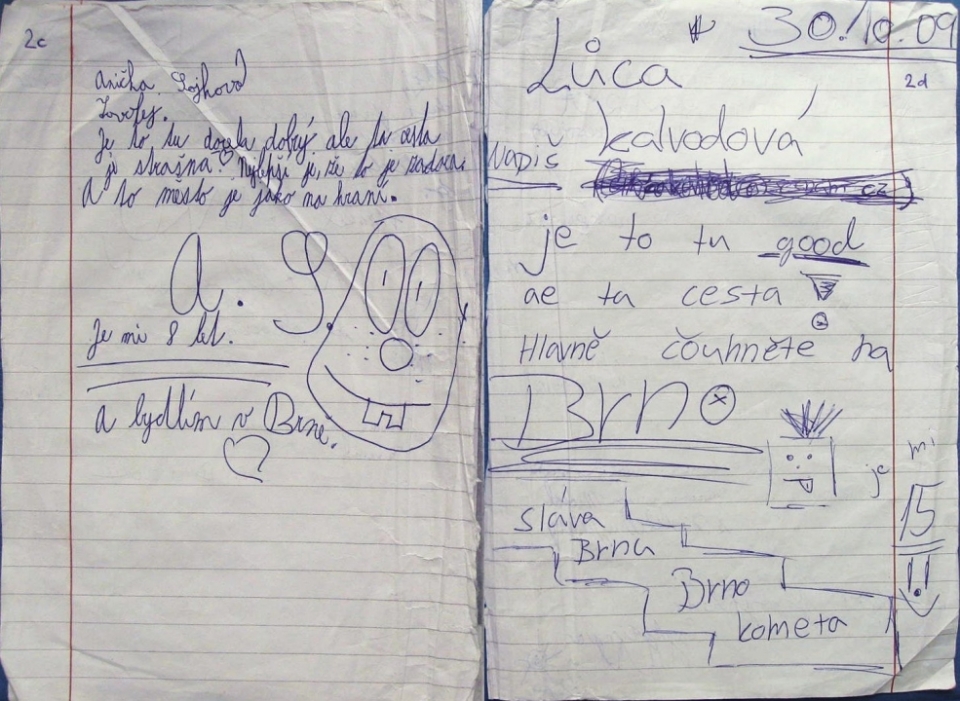 2c
Anička Sojhová
Lovótes.
Je to tu docela dobrý ale ta cesta
je strašna. Nejlepší je, že to je zadara.
A to mesto je jako na hraní.
A. S.
Je mi 8 let.
a bydlím v Brně.
30.10.09
2d
Lůca
kalvodová
Napiš
je to tu good
ae ta cesta
Hlavně čouhněte na
Brno
je mi
15
sláva
Brnu
Brno
kometa